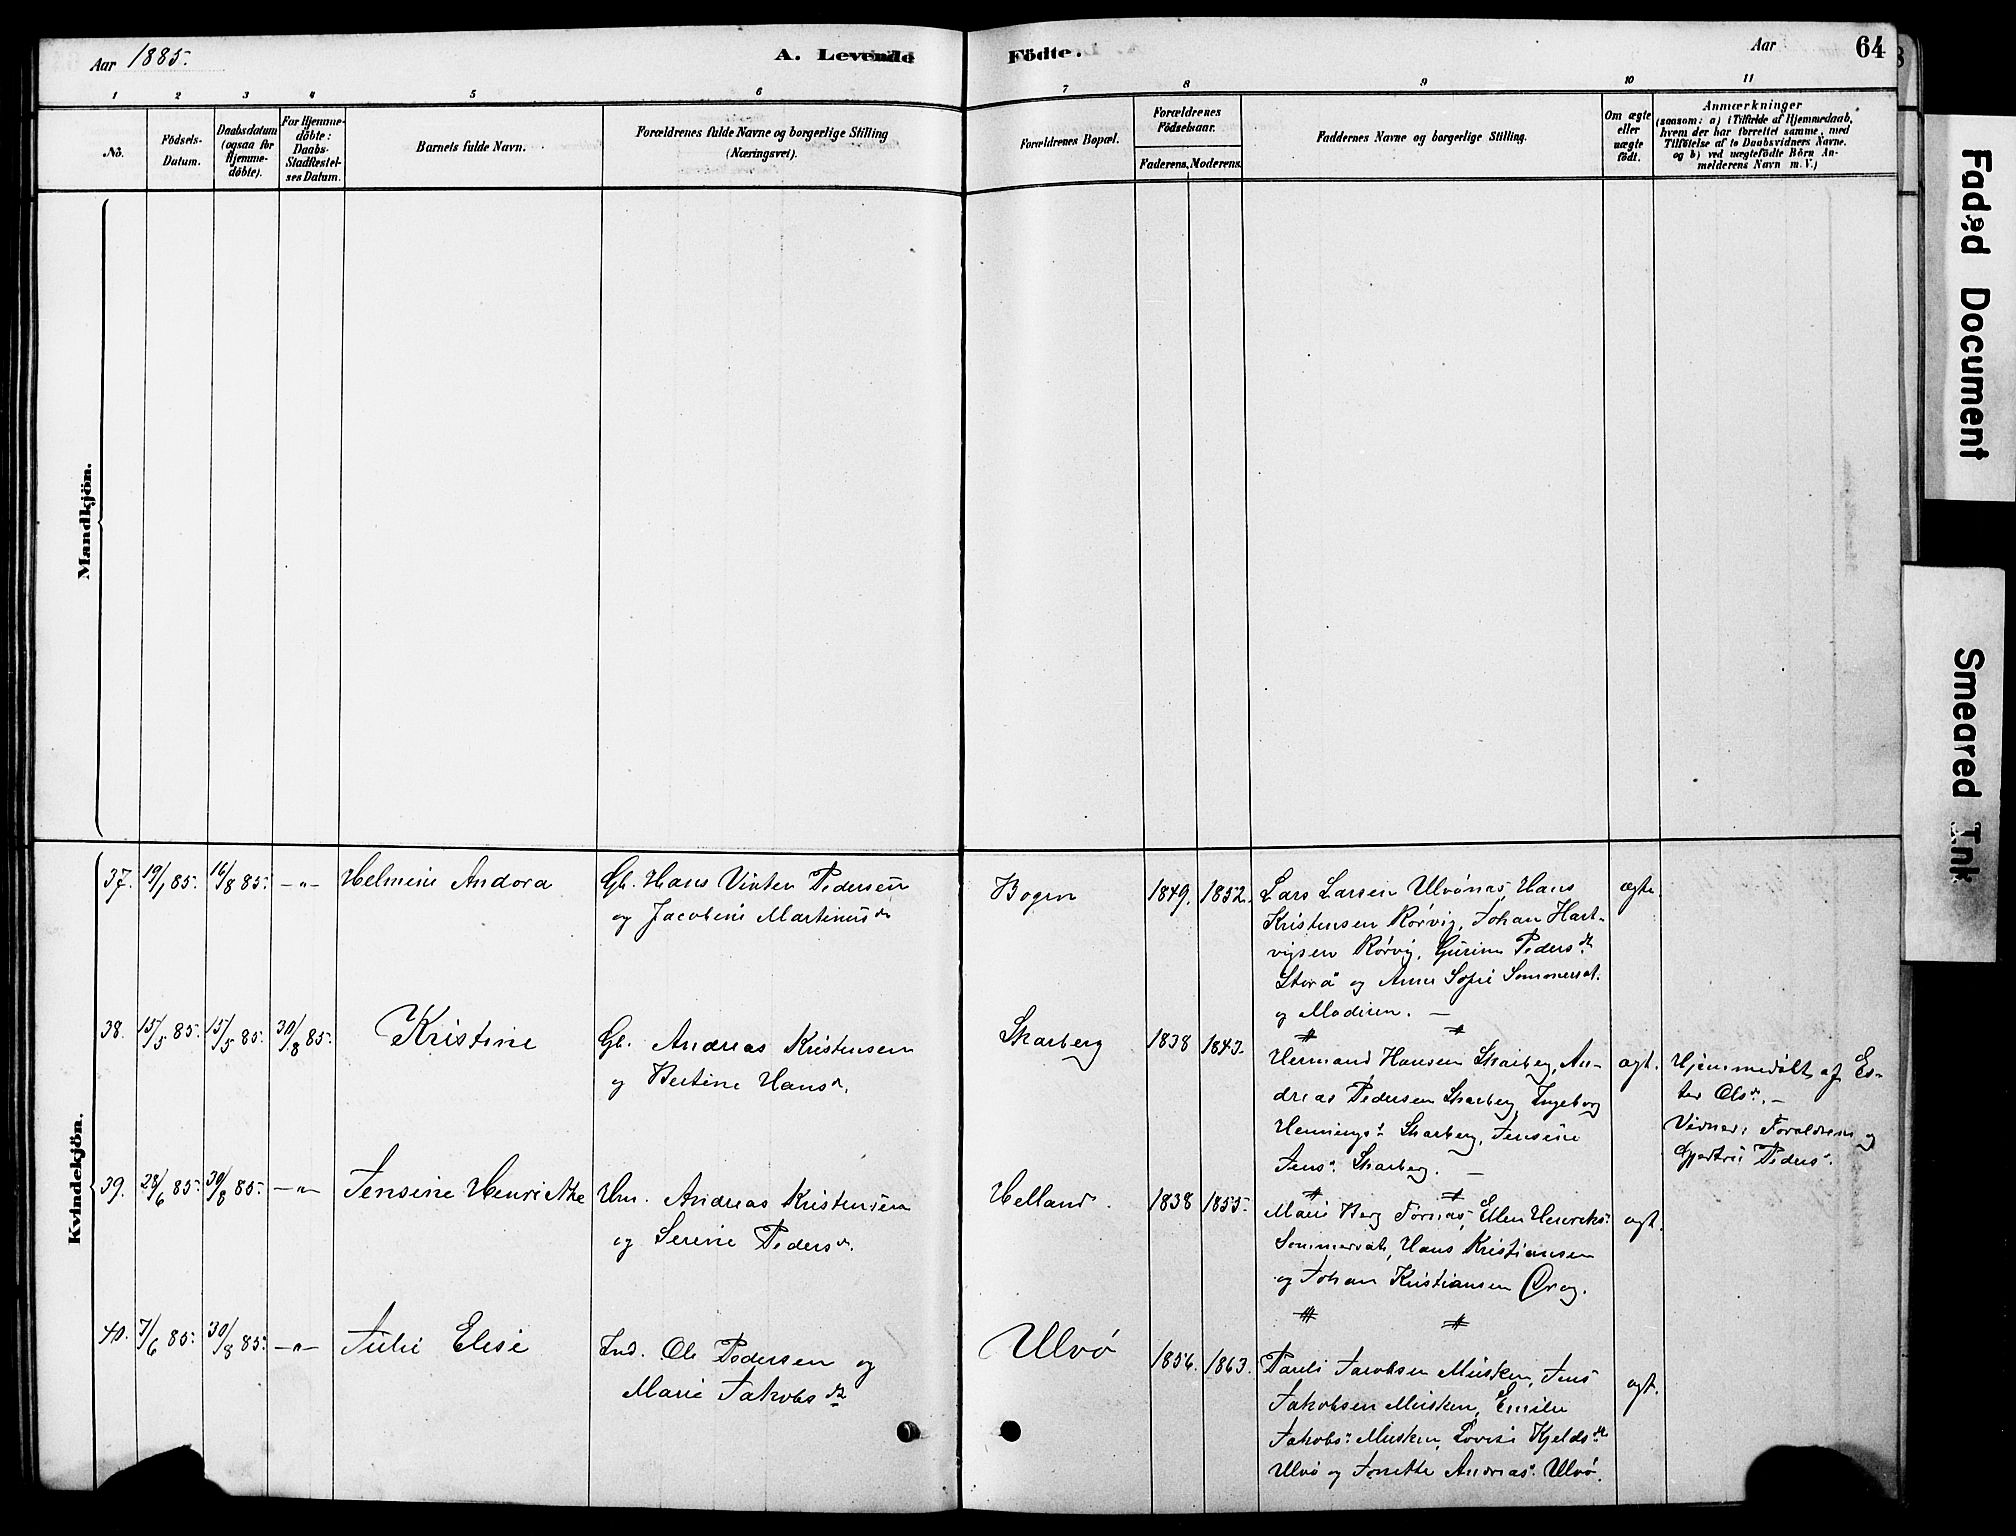 Aar 1885.
A. Levende
Födte.
Aar
64
1 2 3 4 5 6 7 8 9 10 11
No.
Födsels-
Datum.
Daabsdatum
(ogsaa for
Hjemme-
döbte).
For Hjemme-
döbte:
Daabs-
Stadfæstel-
ses Datum.
Barnets fulde Navn.
Forældrenes fulde Navne og borgerlige Stilling
(Næringsvei).
Forældrenes Bopæl.
Forældrenes
Födselsaar.
Faderens. Moderens.
Faddernes Navne og borgerlige Stilling.
Om ægte
eller
uægte
födt.
Anmærkninger
(saasom: a) i Tilfælde af Hjemmedaab,
hvem der har forrettet samme, med
Tilföielse af to Daabsvidners Navne.
og b) ved uægtefödte Börn An-
melderens Navn m. V.)
Mandkjön.
Kvindekjön.
37. 19/1 85. 16/8 85. —„— Helmine Andora
Gb. Hans Vinter Pedersen
og Jacobine Martinusdr
Bogen
1849. 1852.
Lars Larsen Ulvönæs, Hans
Kristensen Rörvig, Johan Hart-
vigsen Rörvig, Gurine Pedersdt
Storå og Anne Sofie Sommerset.
og Moderen. —
ægte.
38. 15/5 85. 15/5 85. 30/8 85. Kristine
Gb. Andreas Kristensen
og Bertine Hansdr.
Skarberg
1838 1843.
Hermand Hansen Skarberg, An-
dreas Pedersen Skarberg, Ingeborg
Hennings. Skarberg, Jensine
Jens. Skarberg. —
ægt.
Hjemmedöbt af Es-
ter Olsdr. —
Vidner: Forældrene og
Gjertrü Peders.
39. 28/6 85. 30/8 85. —„— Jensine Henrikke
Hm. Andreas Kristensen
og Serine Pedersdr.
Helland.
1838 1855.
Marie Berg Fornæs, Ellen Henriks.
Sommersæt, Hans Kristiansen
og Johan Kristiansen Drag.
ægt.
40. 7/6 85. 30/8 85. —„— Julie Elise
Ind. Ole Pedersen og
Marie Jakobsdt
Ulvö
1856. 1863.
Pauli Jacobsen Musken, Jens
Jakobsen Musken, Emilie
Jakobs. Musken, Lovise Kjeldsdt
Ulvö og Jonette Andreas. Ulvö.
ægt.
Faded Document
Smeared Ink